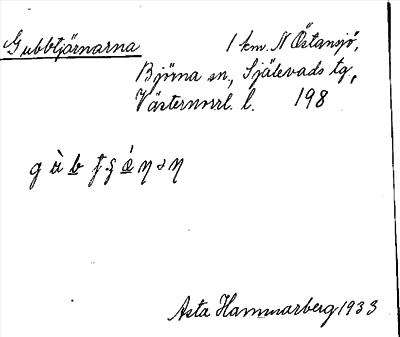 Gubbtjärnarna 1 km. N Östansjö,
Björna sn, Själevads tg,
Västernorrl. l. 198
Asta Hammarberg 1933